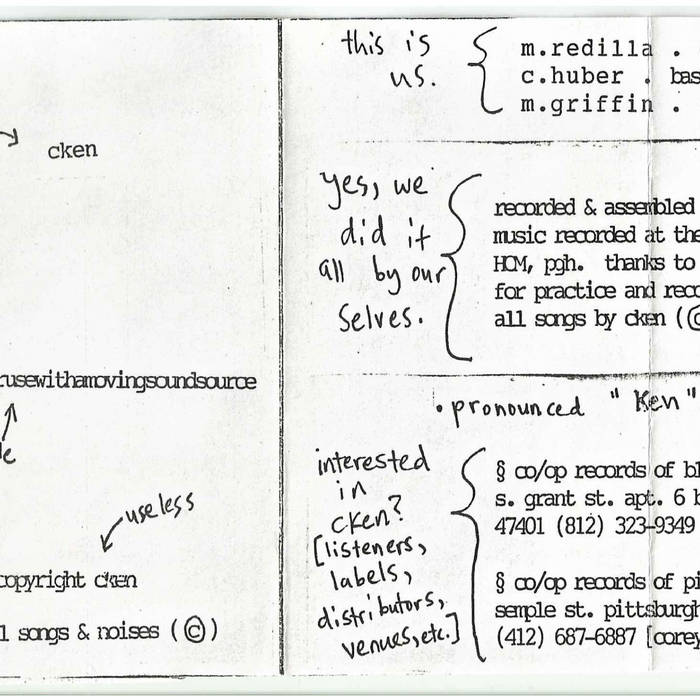 cken
rusewithamovingsoundsource
useless
copyright cken
songs & noises (©)
this is
us.
m.redilla .
c.huber . bas
m.griffin .
yes, we
did it
all by our
selves.
recorded & assembled
music recorded at the
HCM, pgh. thanks to
for practice and reco
all songs by cken (©
• pronounced "Ken"
interested
in
cken?
[listeners,
labels,
distributors,
venues, etc.]
§ co/op records of bl
s. grant st. apt. 6 b
47401 (812) 323-9349
§ co/op records of pi
semple st. pittsburgh
(412) 687-6887 [corey